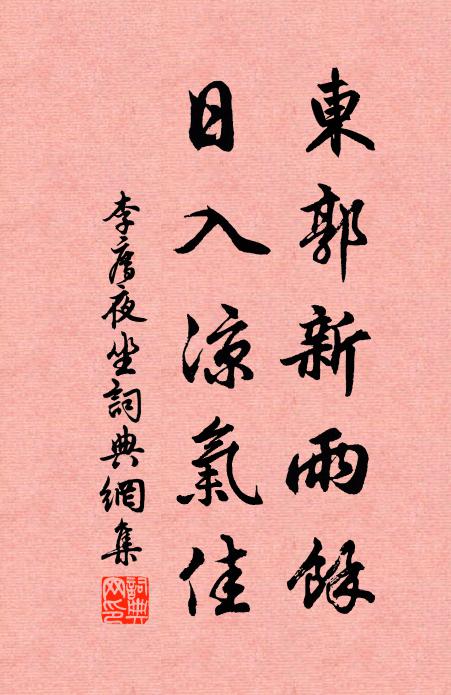 東郭新雨餘
日入涼氣佳
李膺夜坐詞典網集
詞典
网印